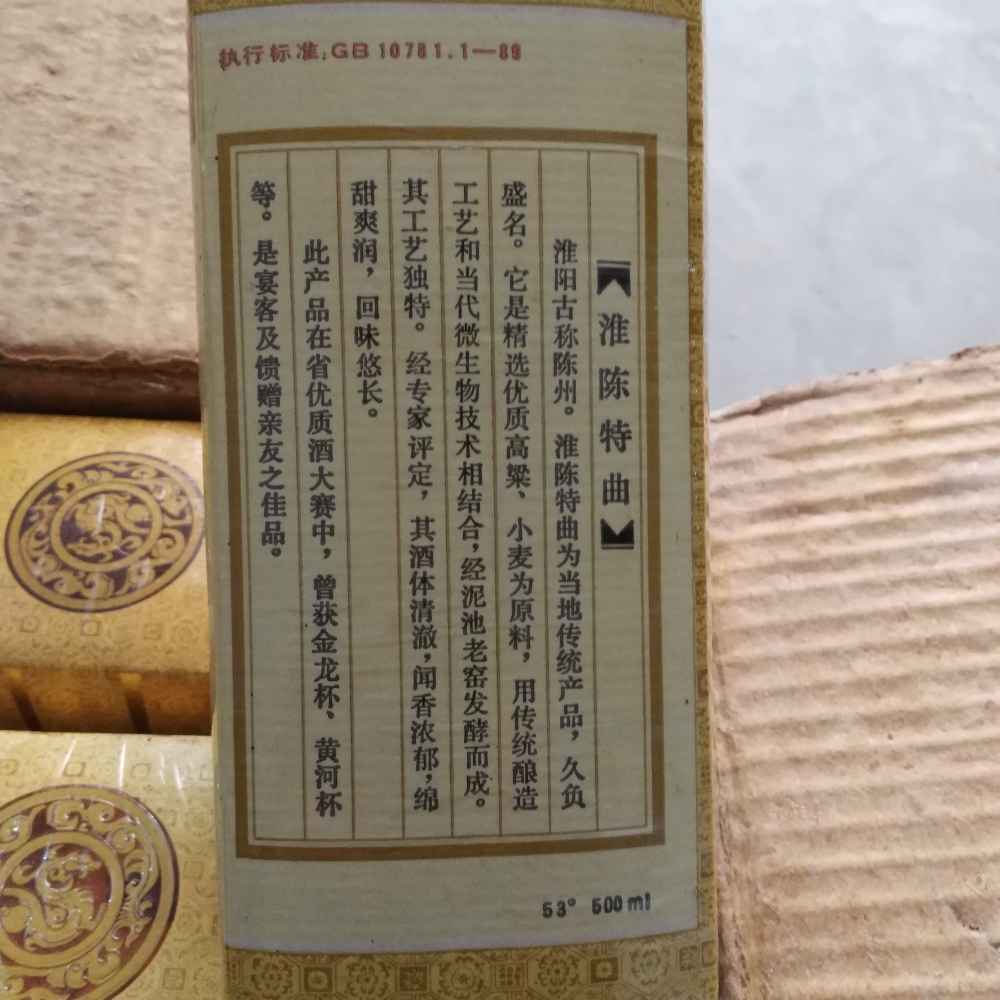 执行标准:GB 10781.1—89
淮陈特曲
淮阳古称陈州。淮陈特曲为当地传统产品，久负
盛名。它是精选优质高粱、小麦为原料，用传统酿造
工艺和当代微生物技术相结合，经泥池老窑发酵而成。
其工艺独特。经专家评定，其酒体清澈，闻香浓郁，绵
甜爽润，回味悠长。
此产品在省优质酒大赛中，曾获金龙杯、黄河杯
等。是宴客及馈赠亲友之佳品。
53° 500ml